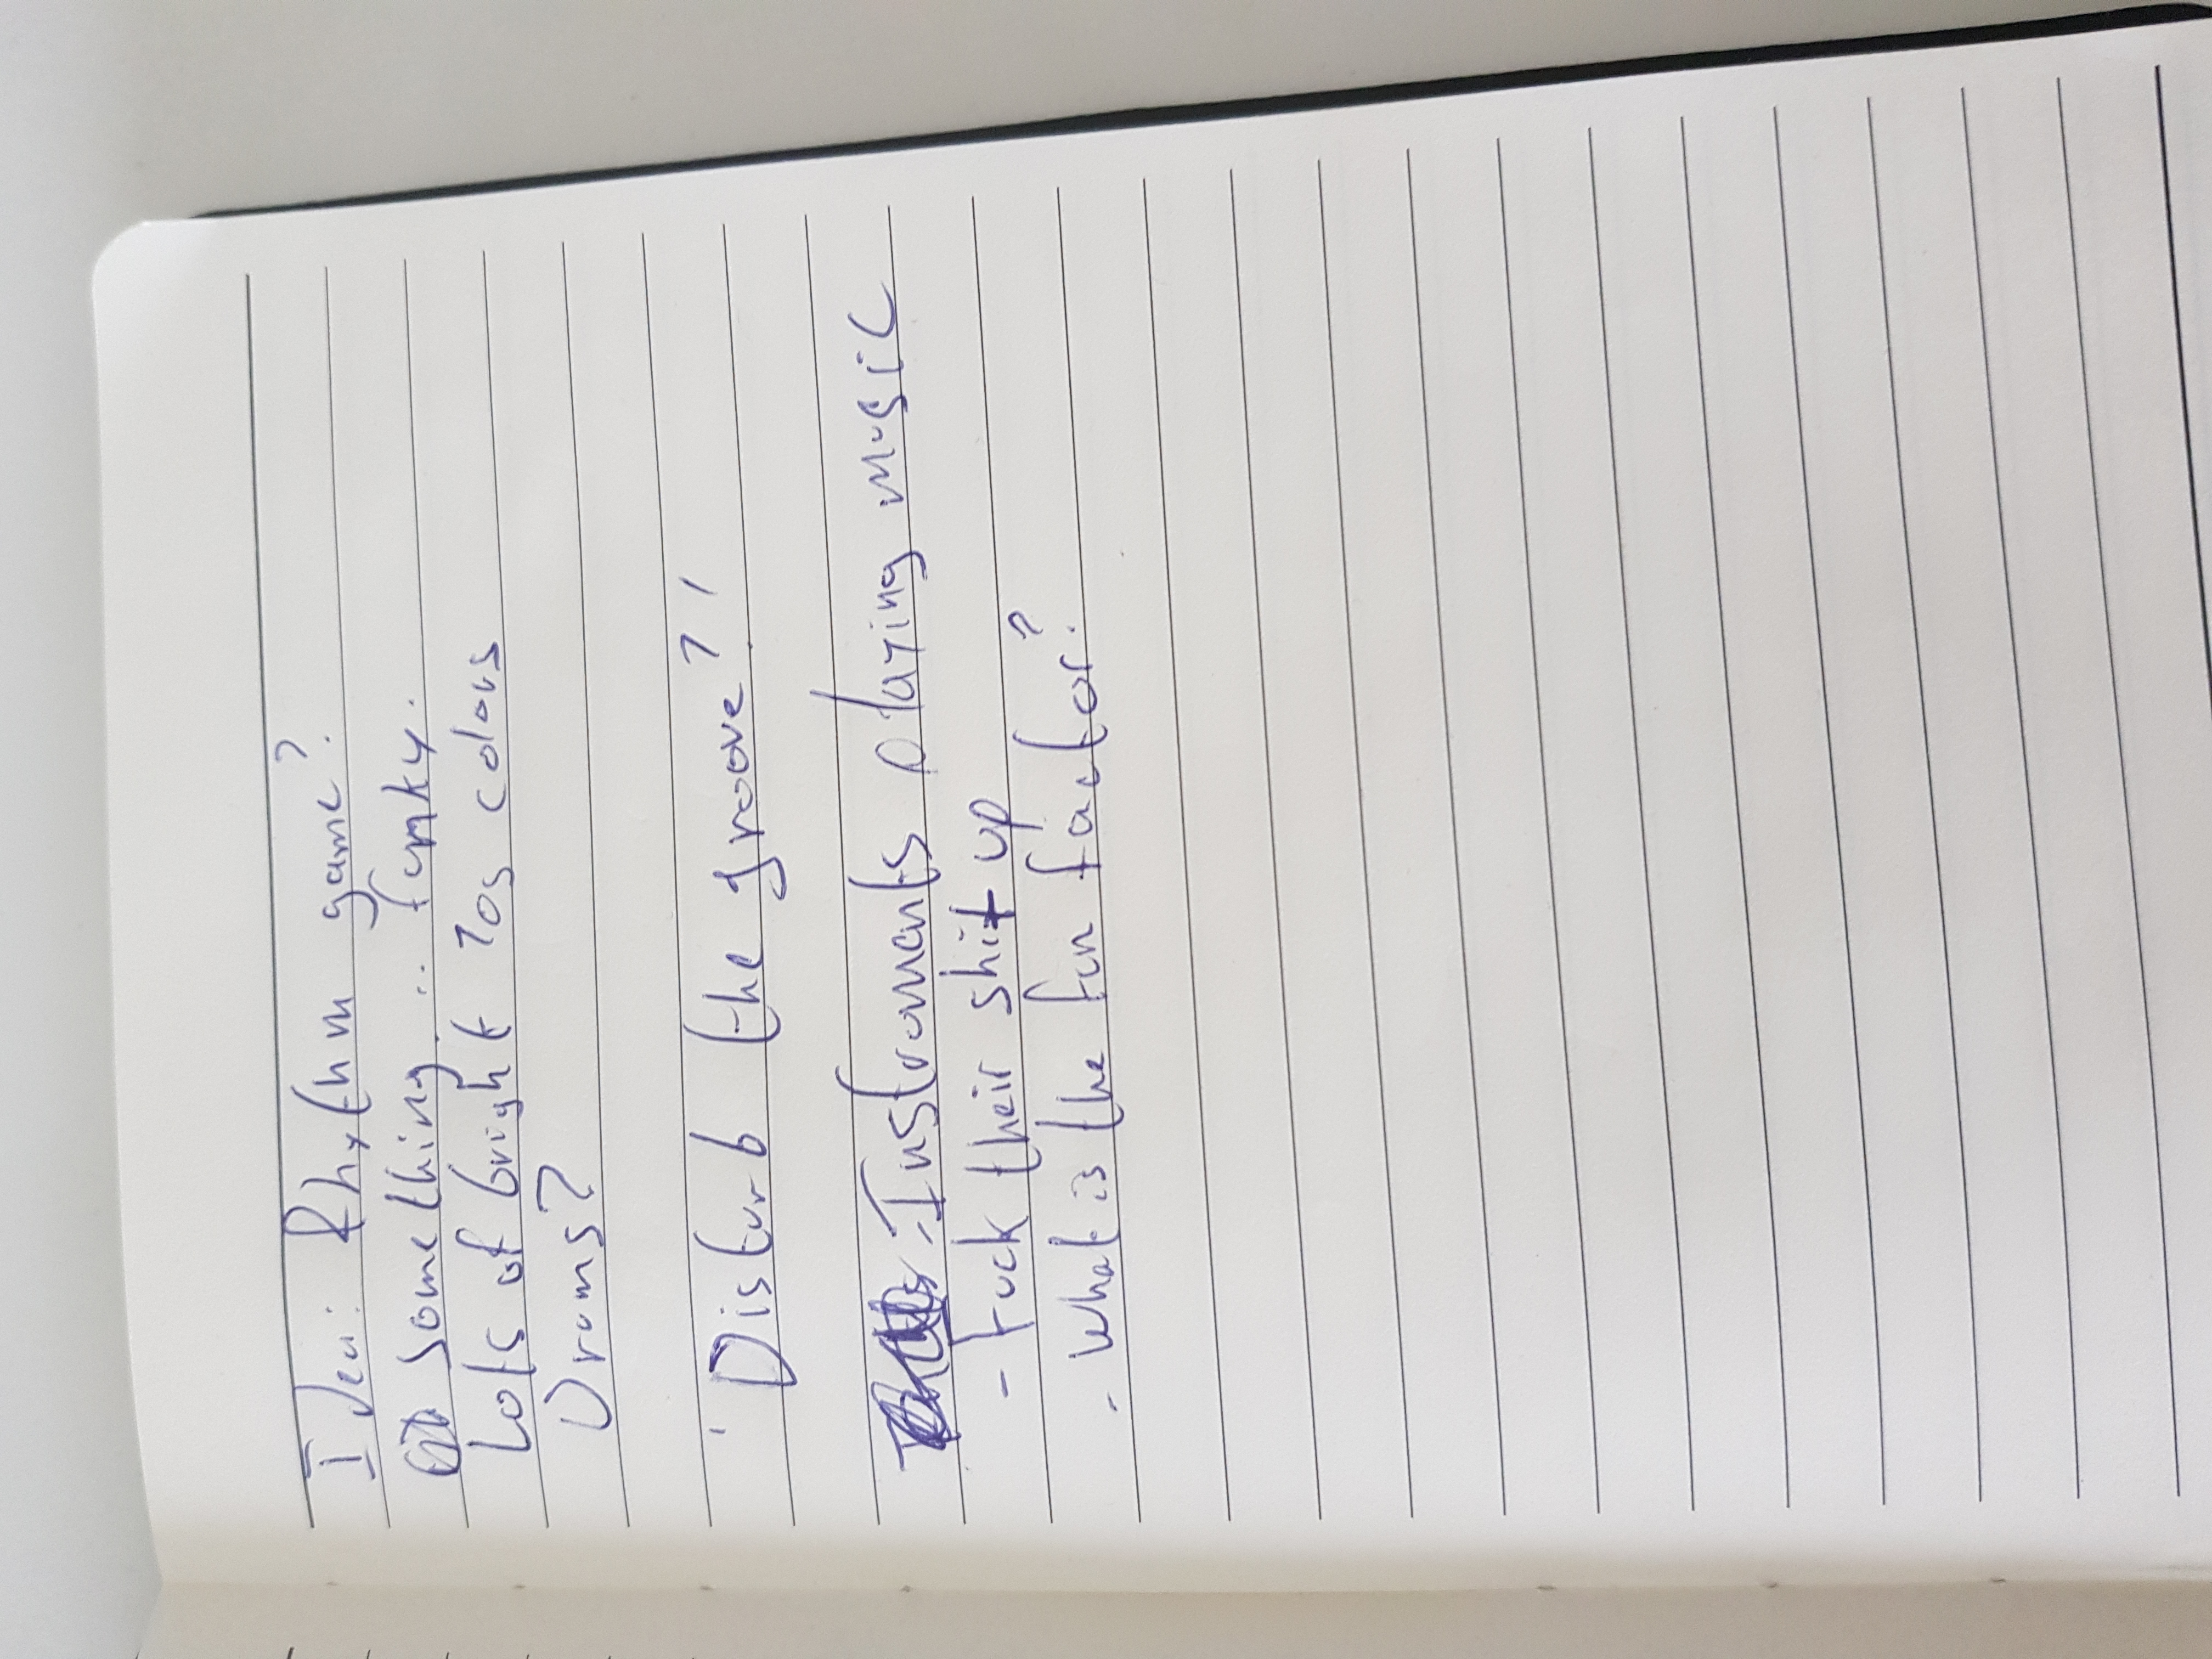 Idea: Rhythm game?
Something... funky.
Lots of bright 70s colors
Drums?
'Disturb the groove?'
- Instruments playing music
- Fuck their shit up
- What is the fun factor?